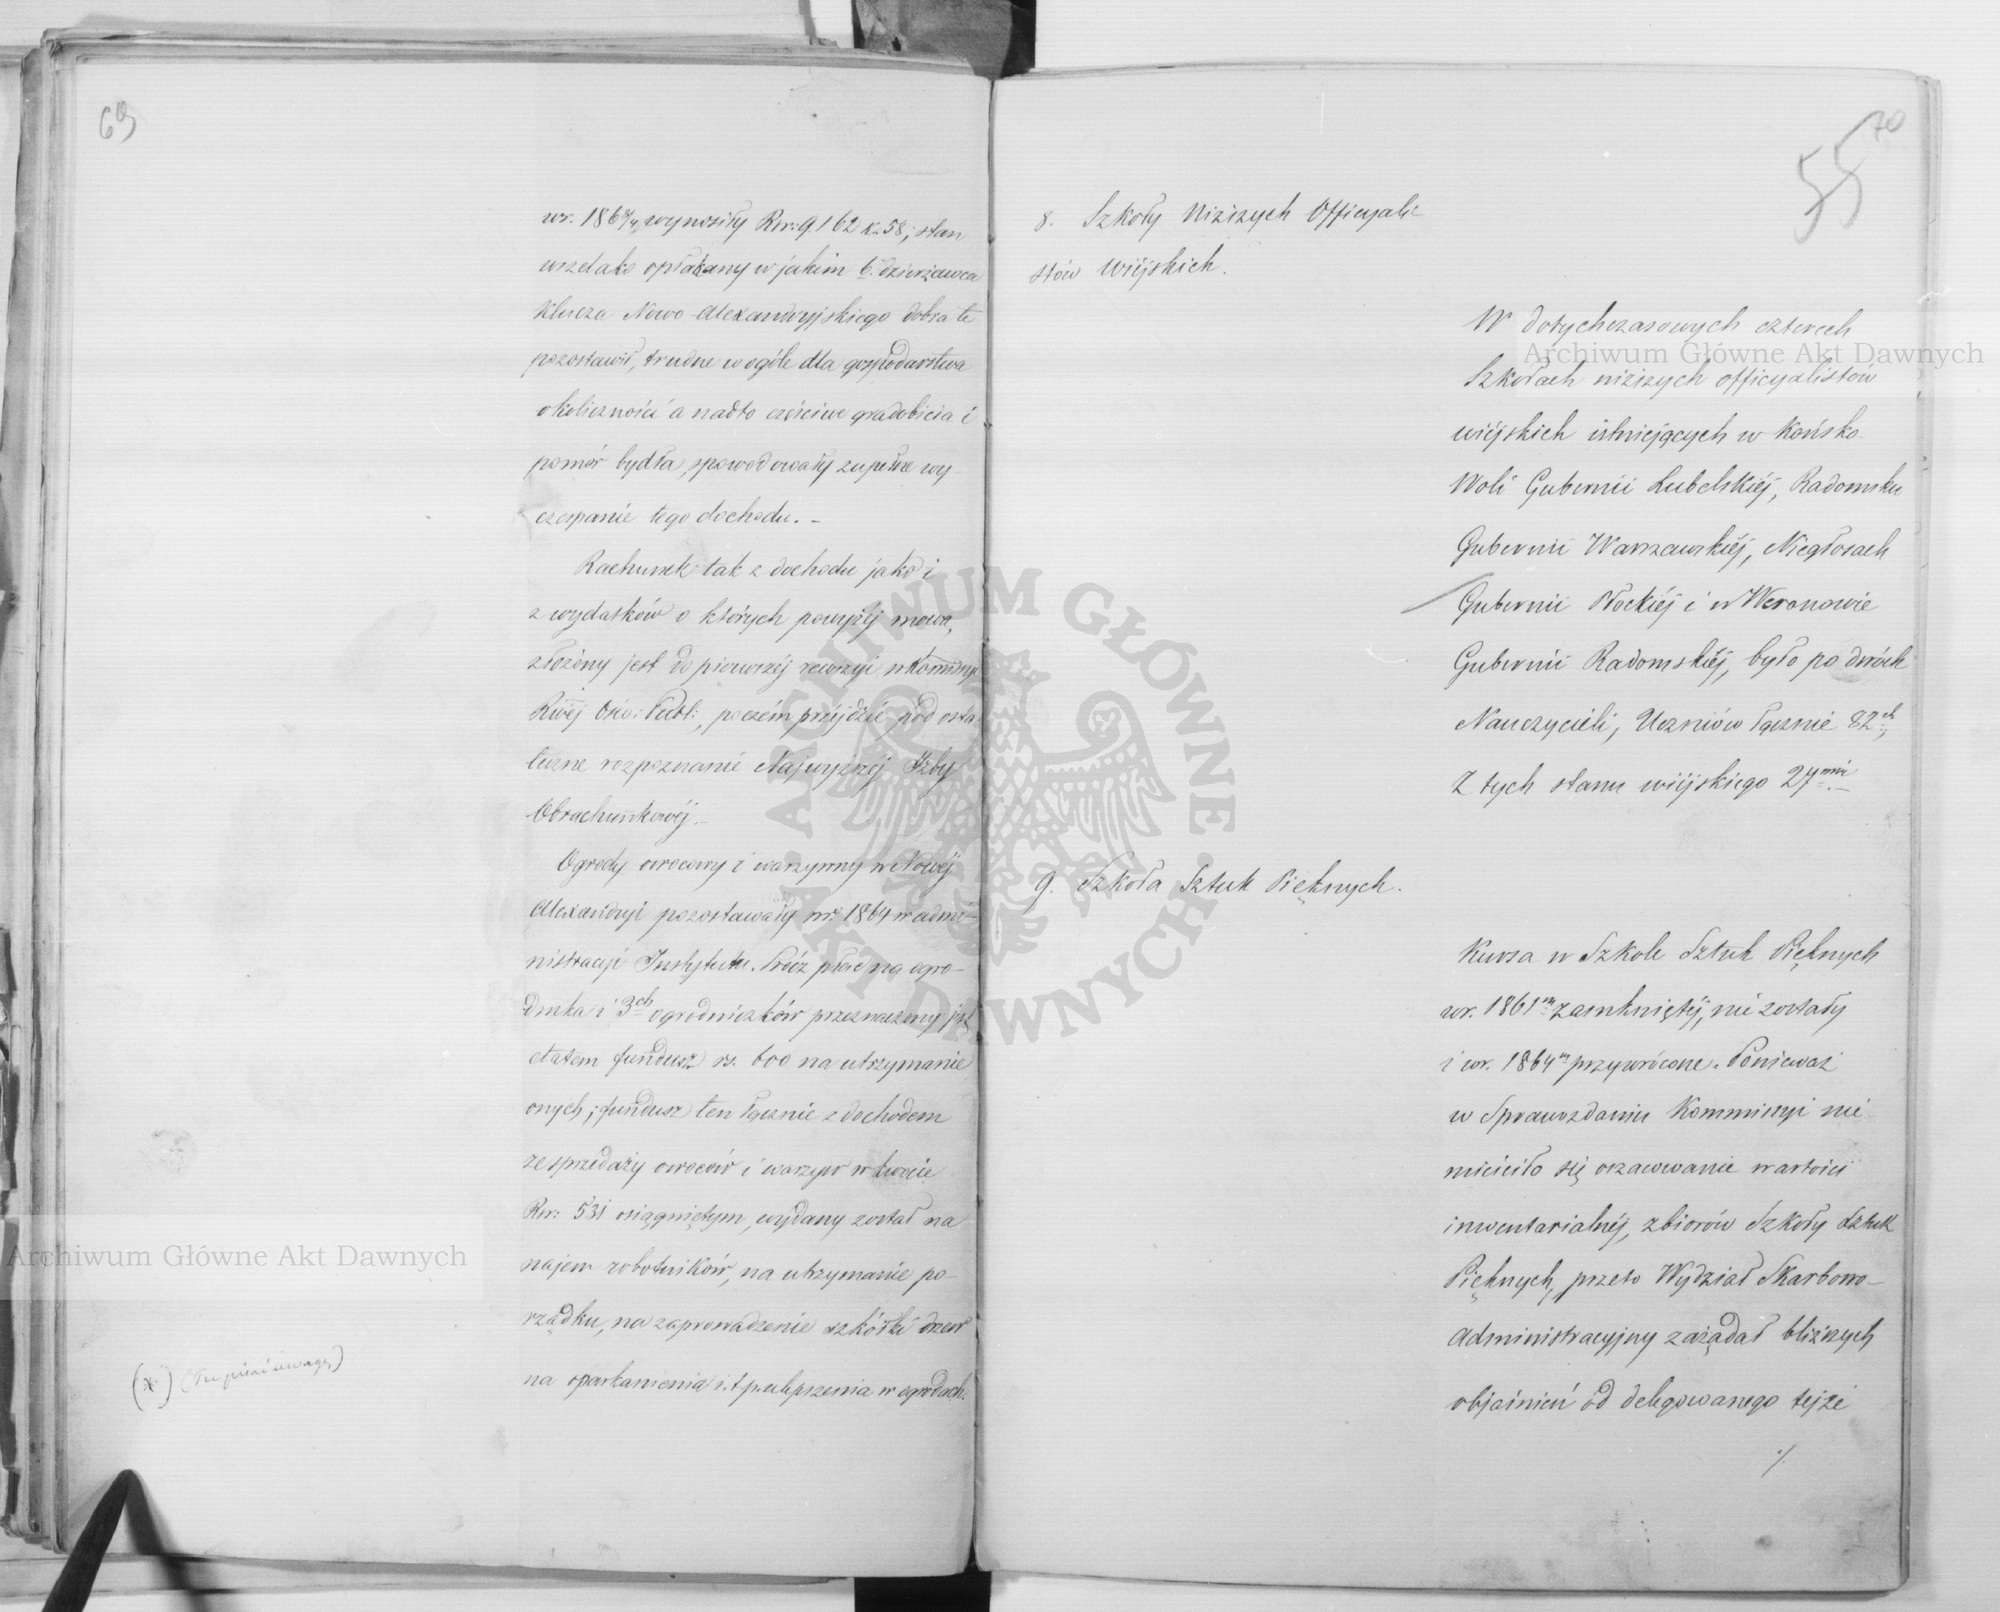 69
wr. 186¾ wynosiły Rsr: 9162 k. 58; stan
wszelako opłakany w jakim b. dzierżawca
Klucza Nowo-Alexandryjskiego dobra te
pozostawił, trudne w ogóle dla gospodarstwa
okoliczności a nadto częściowe gradobicia i
pomór bydła, spowodowały zupełne wy-
czerpanie tego dochodu. -
Rachunek tak z dochodu jako i
z wydatków o których powyżéj mowa,
złożony jest do pierwszéj rewizyi w Kommissyi
Rwéj Ośw: Publ:, poczém przéjdzie pod osta-
teczne rozpoznanie Najwyższéj Izby
Obrachunkowéj. -
Ogrody owocowy i warzywny w Nowéj
Alexandryi pozostawały w r. 1864 w admi-
nistracyi Instytutu. Prócz płac na ogro-
dnika i 3ch ogrodniczków przeznaczony jest
etatem fundusz rs. 600 na utrzymanie
onych; fundusz ten łącznie z dochodem
ze sprzedaży owoców i warzyw w kwocie
Rsr: 531 osiągniętym, wydany został na
najem robotników, na utrzymanie po-
rządku, na zaprowadzenie szkółki drzew
na oparkanienia i.t.p. ulepszenia w ogrodach.
(x) (Tu pisać uwagę)
70
55
8. Szkoły Niższych Officyali-
stów Wiéjskich.
W dotychczasowych czterech
Szkołach niższych officyalistów
wiéjskich istniejących w Końsko-
Woli Gubernii Lubelskiéj, Radomsku
Gubernii Warszawskiéj, Niegłosach
Gubernii Płockiéj i w Wsonowie
Gubernii Radomskiéj, było po dwóch
Nauczycieli, Uczniów łącznie 82ch,
Z tych stanu wiéjskiego 27miu. -
9. Szkoła Sztuk Pięknych.
Kursa w Szkole Sztuk Pięknych
wr. 1861m zamkniętéj, nie zostały
i wr. 1864m przywrócone. Ponieważ
w Sprawozdaniu Kommissyi nie
mieściło się oszacowanie wartości
inwentarialnéj, zbiorów Szkoły Sztuk
Pięknych, przeto Wydział Skarbowo-
Administracyjny zażądał bliższych
objaśnień od delegowanego tejże
./.
Archiwum Główne Akt Dawnych
Archiwum Główne Akt Dawnych
ARCHIWUM GŁÓWNE AKT DAWNYCH